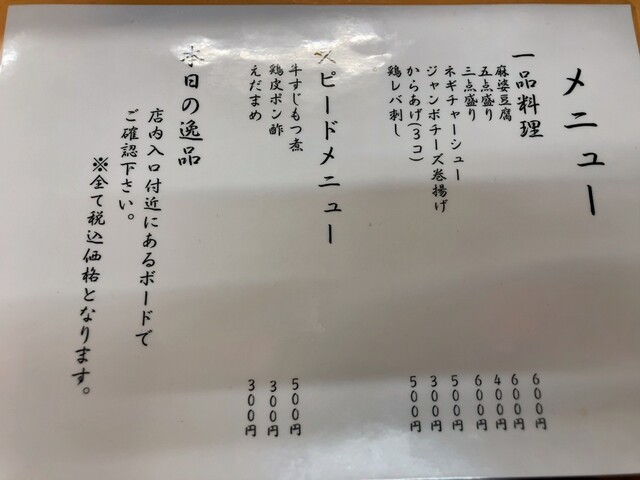 メニュー
一品料理
麻婆豆腐 600円
五点盛り 600円
三点盛り 400円
ネギチャーシュー 600円
ジャンボチーズ巻揚げ 500円
からあげ(3コ) 300円
鶏レバ刺し 500円
スピードメニュー
牛すじもつ煮 500円
鶏皮ポン酢 300円
えだまめ 300円
本日の逸品
店内入口付近にあるボードで
ご確認下さい。
※全て税込価格となります。